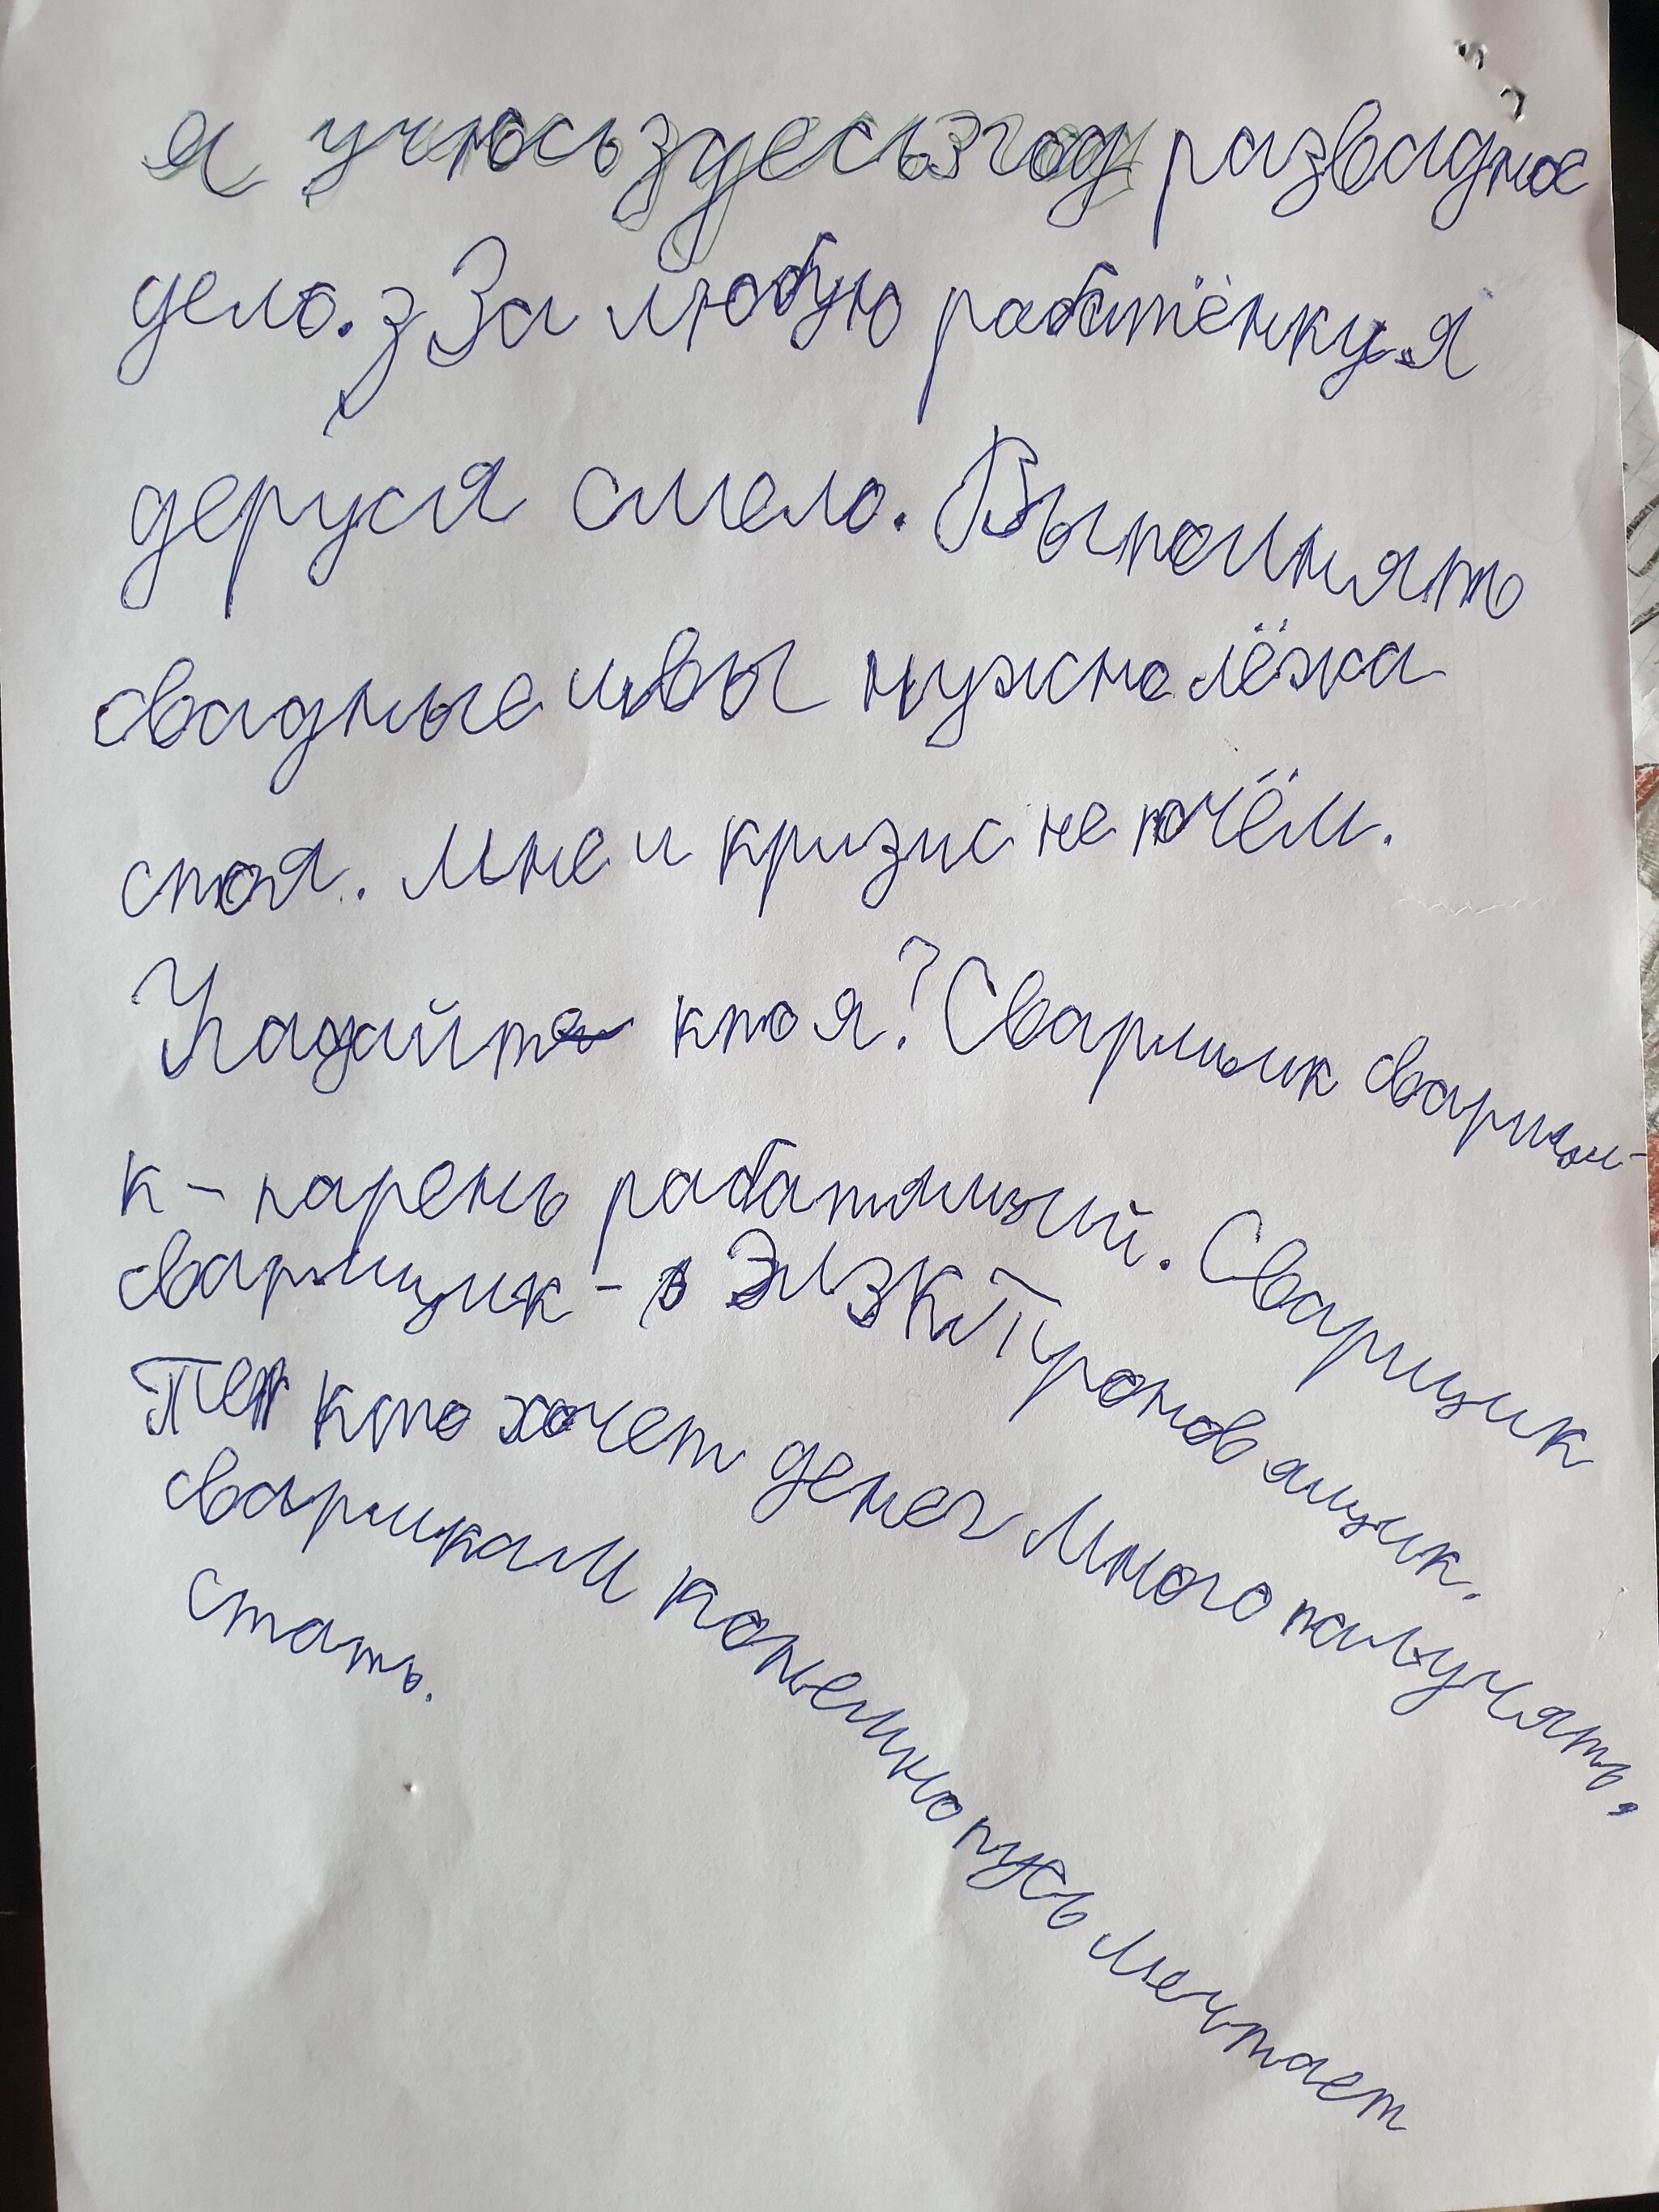 я учюсь здесь 3 год развадное
дело. з За любую работёнку я
деруся смело. Выпоинять
свадные швы нужно лёжа
стоя. мне и кризис не почём.
Угадайте кто я? Сваршик сварщи-
к - парень работящий. Сварщик
сварщик - в Элзктроновящик.
Тем кто хочет денег много палучять,
сваршкам конешно пусь мечтает
стать.